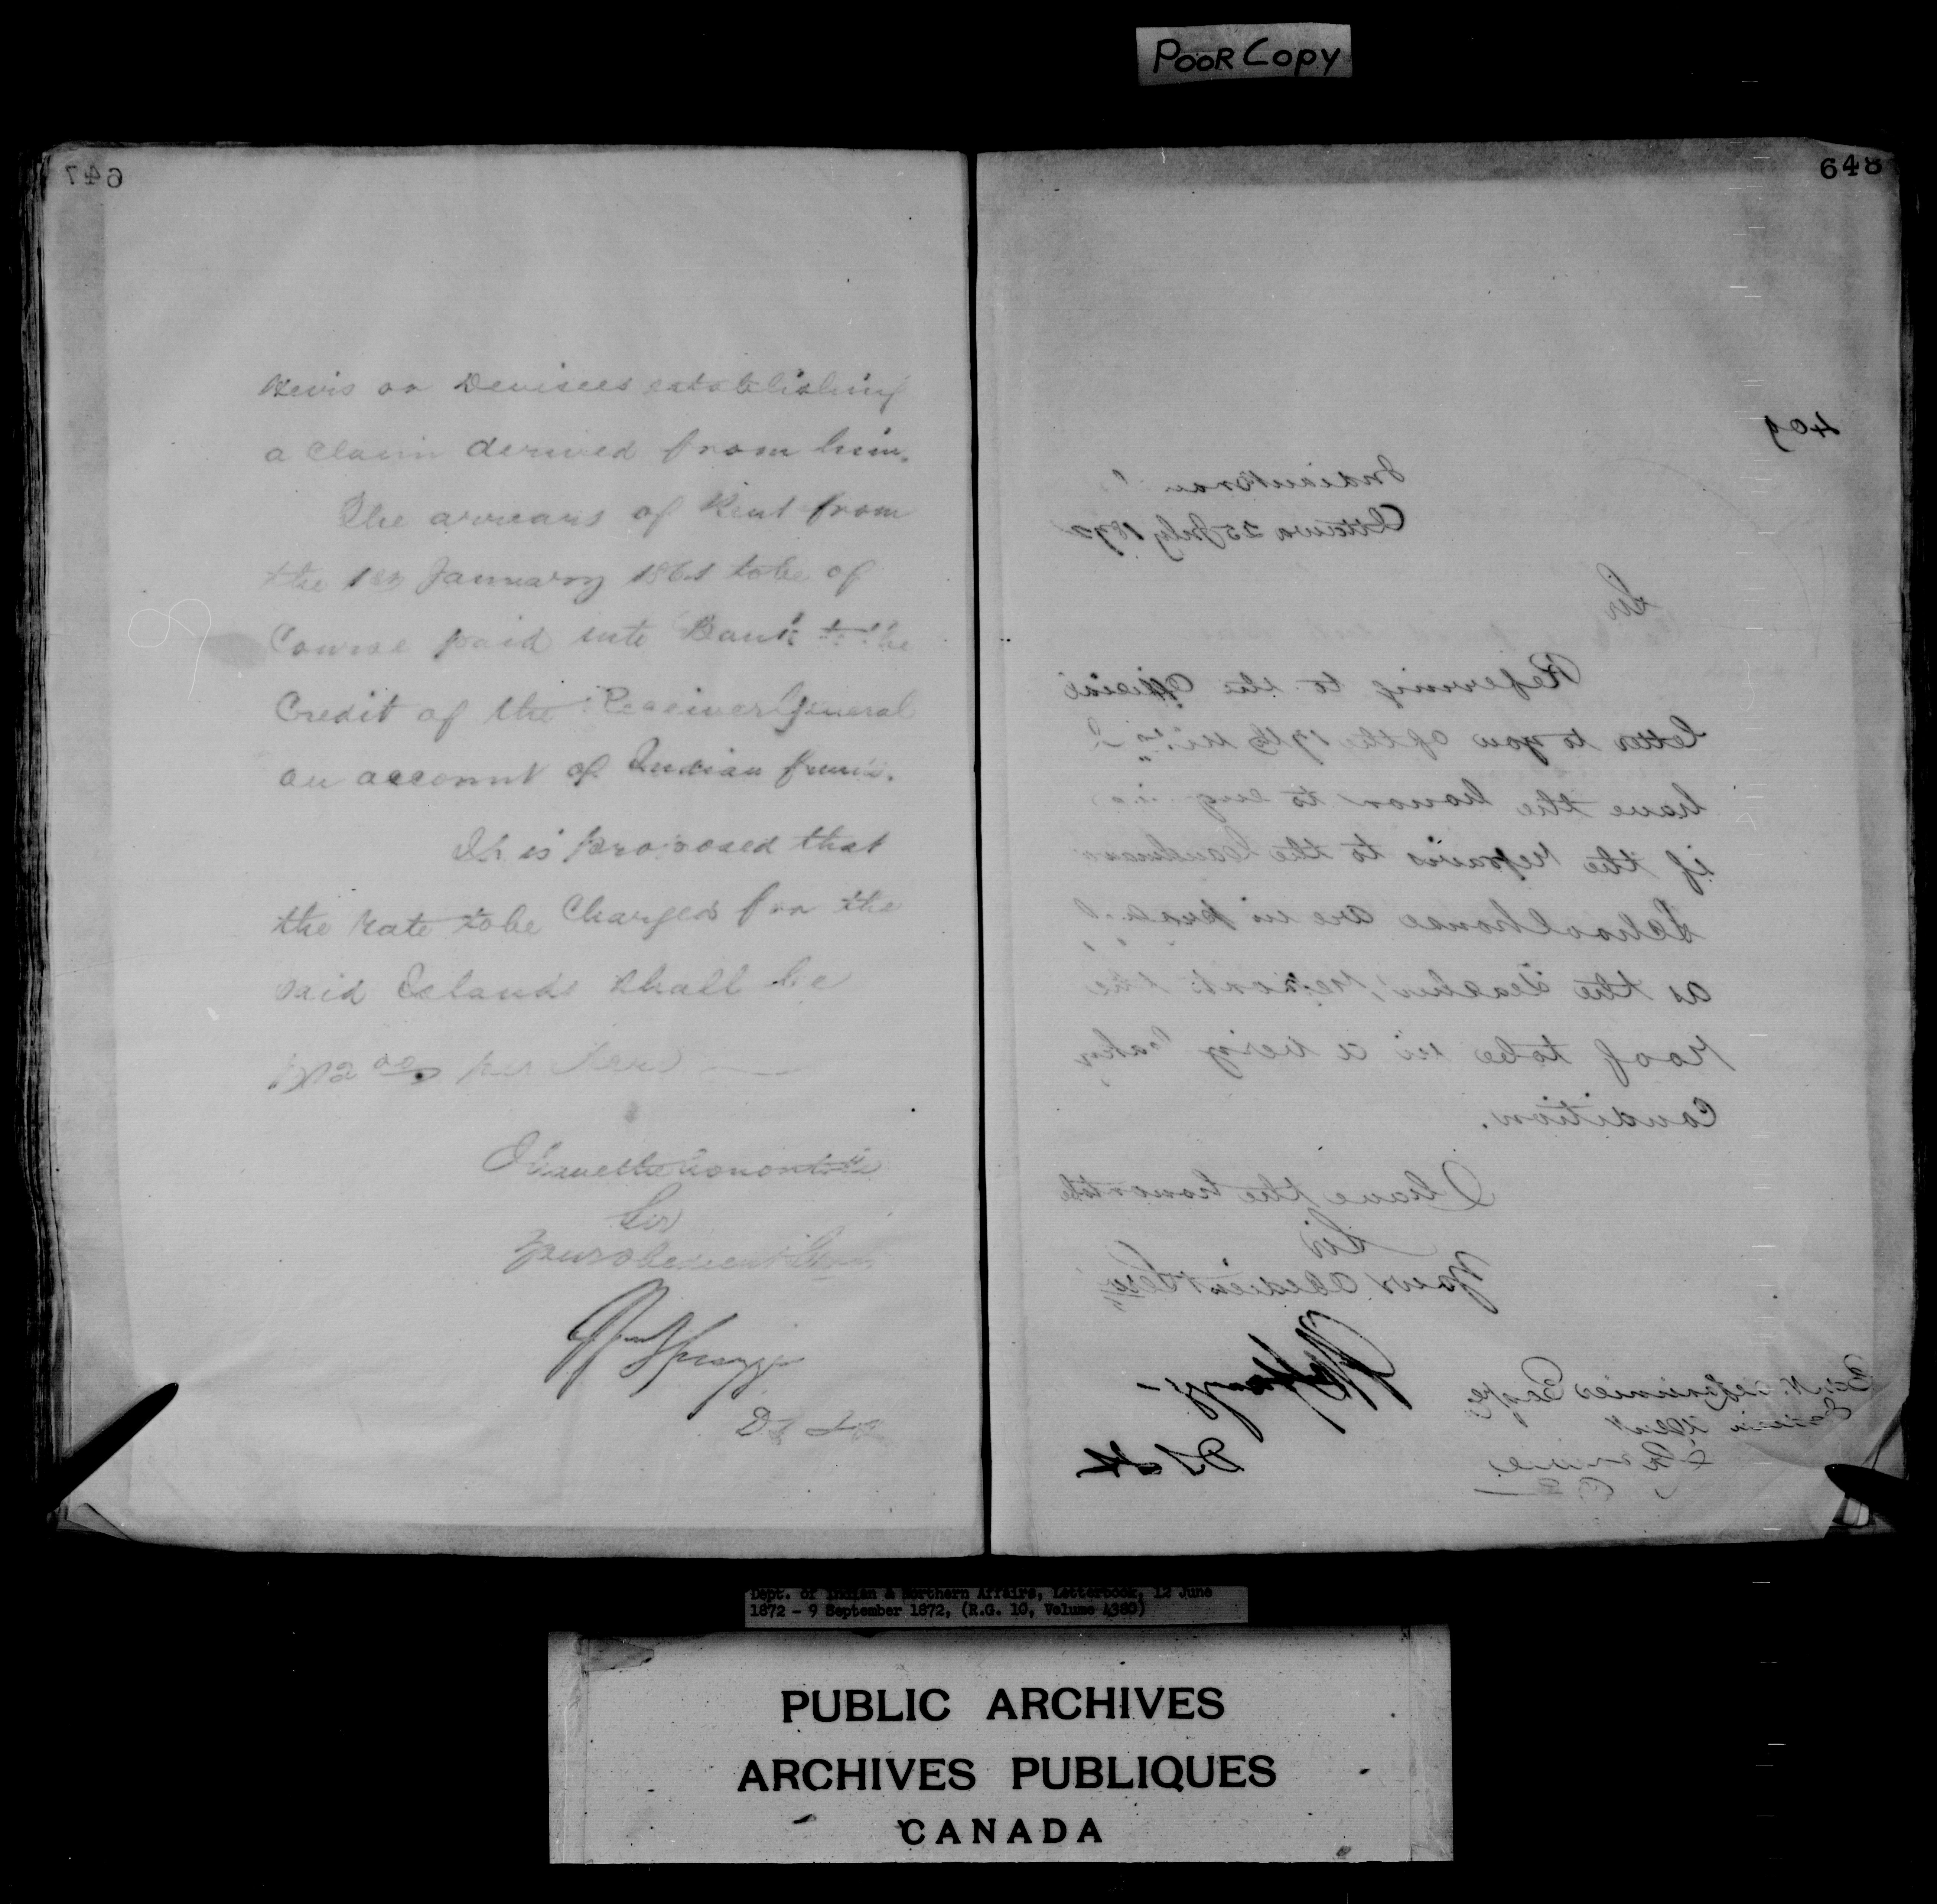 POOR Copy
647
Heirs or Devisees establishing
a Claim derived from him.
The arrears of Rent from
the 1st January 1861 to be of
Course paid into Bank to the
Credit of the Receiver General
on account of Indian funds.
It is proposed that
the rate to be Charged for the
said Islands shall be
per Acre
I have the honor to be
Sir
Your obedient Servt
Wm Spragge
D S I A
648
409
Indian Branch
Ottawa 25 July 1872
Sir
Referring to the Official
letter to you of the 17th I
have the honor to enquire
if the repairs to the
Schoolhouse are in
as the teacher reports the
roof to be in a very leaky
Condition.
I have the honor to be
Sir
Your obedient Servt
Wm Spragge
D S I A
Esqre
Agent
Dept. of Indian & Northern Affairs, Letterbook, 12 June
1872 - 9 September 1872, (R.G. 10, Volume 4380)
PUBLIC ARCHIVES
ARCHIVES PUBLIQUES
CANADA